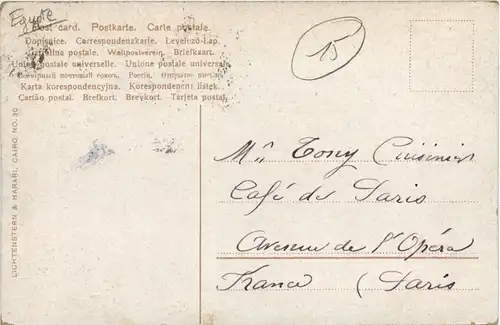 Egypte
Post card. Postkarte. Carte postale.
Dopisnice. Correspondenzkarte. Levelező-Lap.
postale. Weltpostverein. Briefkaart.
Union postale universelle. Unione postale universale
Россія.
Karta korespondencyjna. Korespondenční lístek.
Cartão postal. Brefkort. Brevkort. Tarjeta postal.
15
LICHTENSTERN & HARARI, CAIRO NO. 30
Mr. Tony Cuisinier
Café de Paris
Avenue de l'Opéra
France (Paris